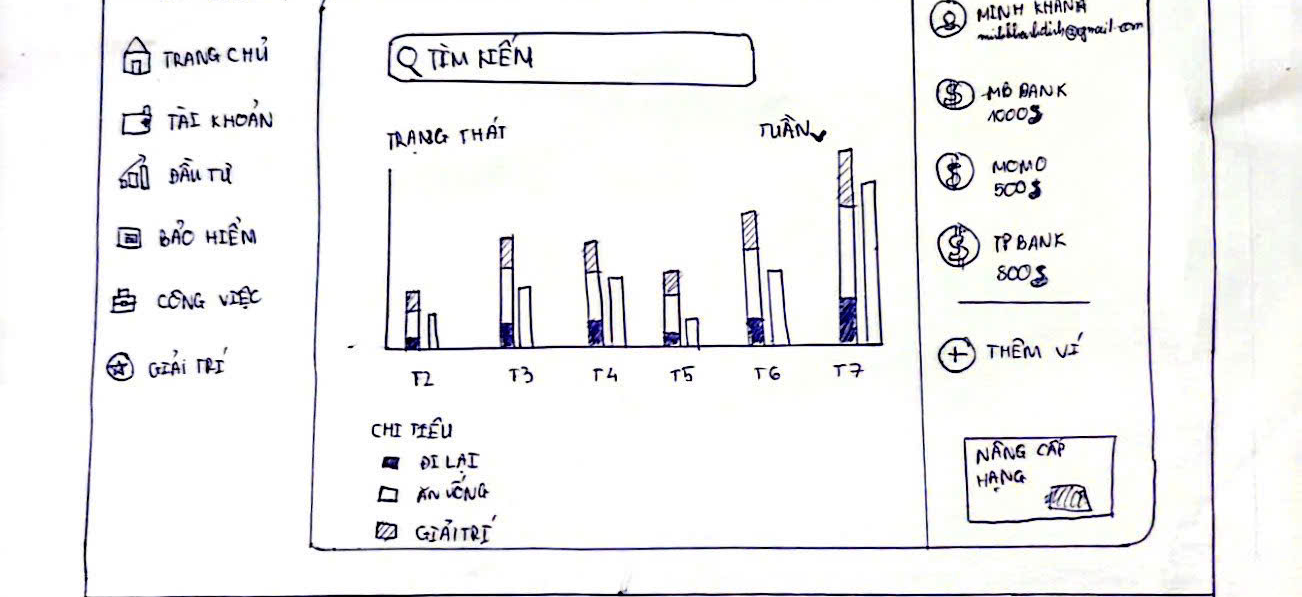 TRANG CHỦ
TÀI KHOẢN
ĐẦU TƯ
BẢO HIỂM
CÔNG VIỆC
GIẢI TRÍ
TÌM KIẾM
TRẠNG THÁT
TUẦN
T2 T3 T4 T5 T6 T7
CHI TIÊU
ĐI LẠI
ĂN UỐNG
GIẢI TRÍ
MINH KHÁNH
@gmail.com
MB BANK
1000$
MOMO
500$
TP BANK
800$
THÊM VÍ
NÂNG CẤP
HẠNG